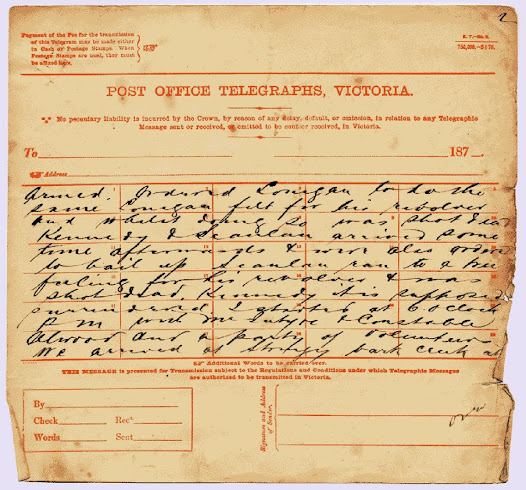 2
Payment of the Fee for the transmission
of this Telegram may be made either
in Cash or Postage Stamps. When
Postage Stamps are used, they must
be affixed here.
E. T.—No. 2.
POST OFFICE TELEGRAPHS, VICTORIA.
No pecuniary liability is incurred by the Crown, by reason of any delay, default, or omission, in relation to any Telegraphic
Message sent or received, or omitted to be sent or received, in Victoria.
To 187 .
Address
armed. Ordered Lonigan to do the
same Lonigan felt for his revolver
and whilst doing so was shot dead
Kennedy & Scanlan arrived some
time afterwards & were also ordered
to bail up Scanlan ran to a tree
feeling for his revolver & was
shot dead. Kennedy it is supposed
surrendered I started at 6 O'Clock
P M with McIntyre & Constable
Alwood and a party of volunteers
We arrived at Stringy bark Creek at
Additional Words to be carried over.
THIS MESSAGE is presented for Transmission subject to the Regulations and Conditions under which Telegraphic Messages
are authorized to be transmitted in Victoria.
By
Check Recd
Words Sent
Signature and Address
of Sender.